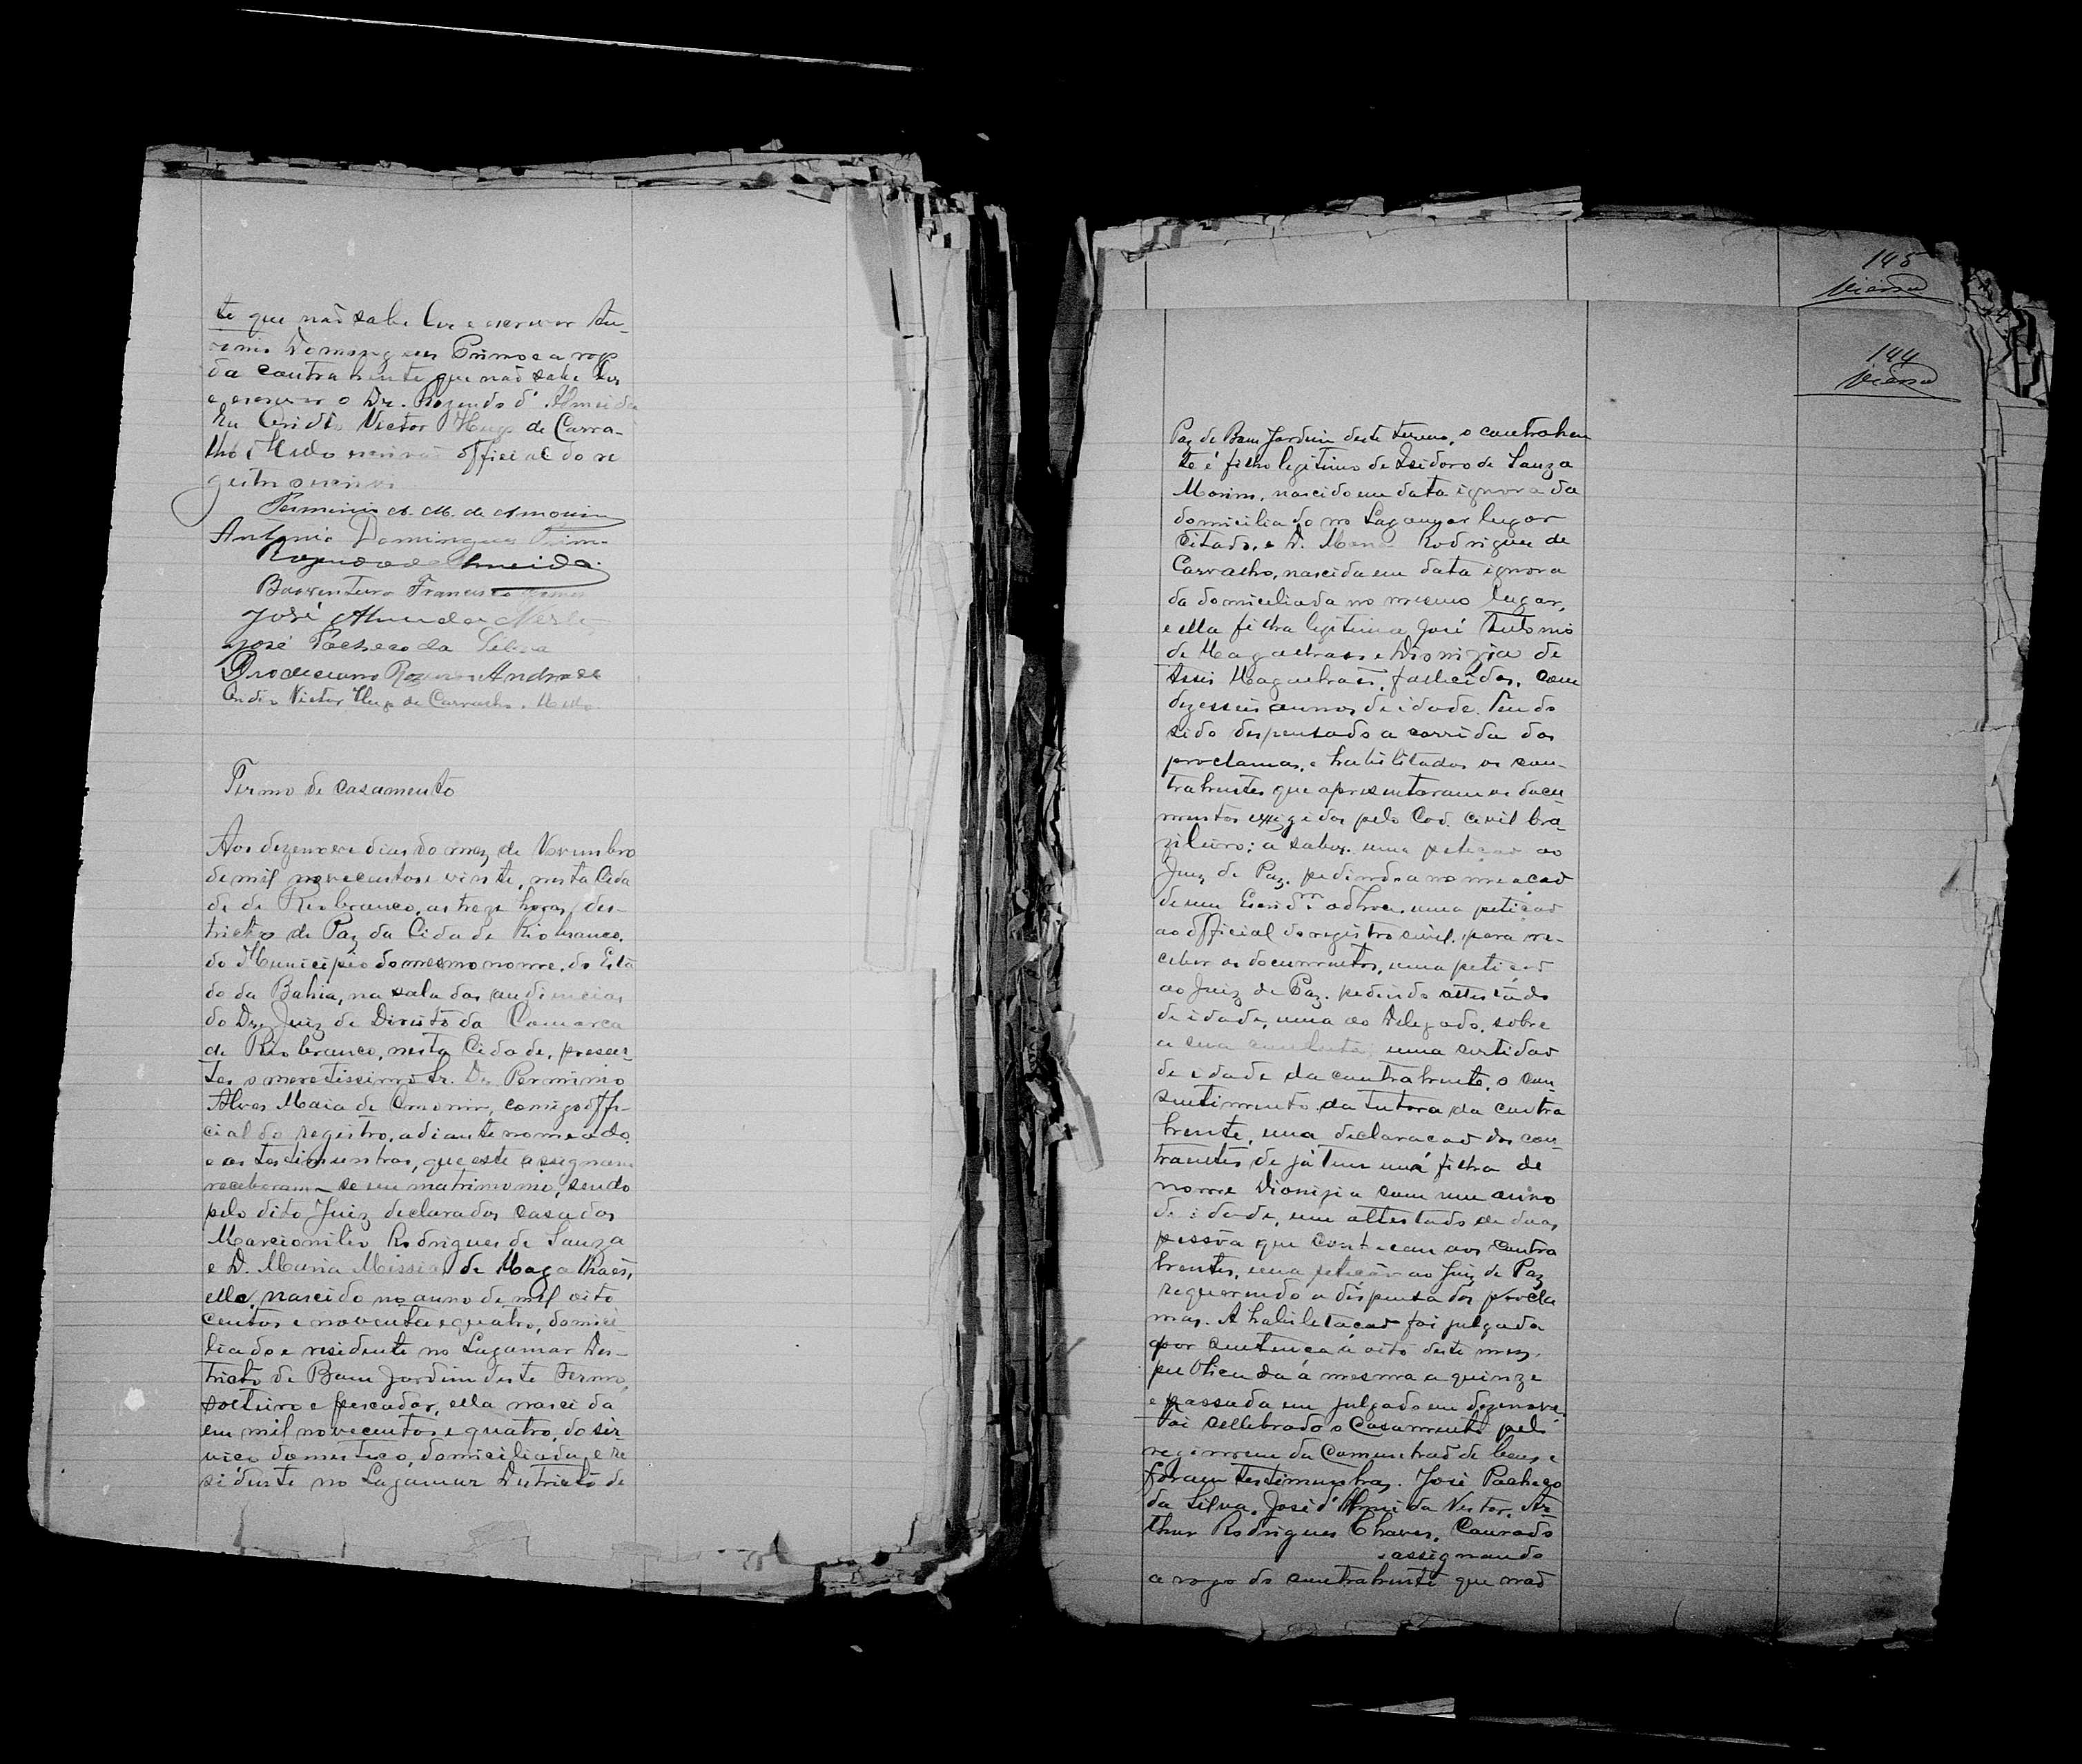 te que não sabe ler e escrever An-
tonio Domingues Primo e a rogo
da contrahente que não sabe ler
e escrever o Dr. Rozendo d'Almeida
Eu Candido Victor Hugo de Carva-
lho Mello escrivão official do re
gistro escrevi
Perminio A. M. de Amorim
Antonio Domingues Primo
Rozendo de Almeida
Boaventura Francisco
José Almeida
José Pacheco da Silva
Andrade
Victor Hugo de Carvalho Mello
Termo de casamento
Aos dezenove dias do mez de Novembro
de mil novecentos e vinte, nesta Cida
de de Rio branco, as treze horas, des-
tricto de Paz da Cidade Rio branco,
do Municipio do mesmo nome, do Esta
do da Bahia, na sala das audiencias
do Dr. Juiz de Direito da Comarca
de Rio branco, nesta Cidade, presen-
tes o meretissimo Sr. Dr. Perminio
Alves Maia de Amorim, comigo offi-
cial do registro, adiante nomeado,
e as testimunhas, que este assignam
receberam-se em matrimonio, sendo
pelo dito Juiz declarados casados
Marcionilio Rodrigues de Souza
e D. Maria Missias de Magalhaes,
elle, nascido no anno de mil oito
centos e noventa e quatro, domici-
liado e residente no Lagamar Des-
tricto de Bom Jardim deste termo,
solteiro e pescador, ella nascida
em mil novecentos e quatro, do ser-
viço domestico, domiciliada e re
sidente no Lagamar Destricto de
145
144
Paz de Bom Jardim deste termo, o contrahen
te é filho legitimo de Isidoro de Souza
nascido em data ignorada
domiciliado no Lagamar lugar
citado, e D. Maria Rodrigues de
Carvalho, nascida em data ignora
da domiciliada no mesmo lugar,
e ella filha legitima José Antonio
de Magalhaes e Dionizia de
Assis Magalhaes, fallecidos, com
dezesseis annos de idade. Tendo
sido despensado a corrida dos
proclamas, e habilitados os con-
trahentes que apresentaram os docu
mentos exigidos pelo Cod. civil bra-
zileiro; a saber, uma petição ao
Juiz de Paz, pedindo a nomeação
de um adhoc, uma petição
ao official do registro civil, para re-
ceber os documentos, uma petição
ao Juiz de Paz, pedindo attestado
de idade, uma ao Delegado, sobre
a sua conducta, uma certidão
de idade da contrahente, o con
sentimento da tutora da contra
hente, uma declaração dos con-
trahentes de já terem uma filha de
nome Dionizia com um anno
de idade, um attestado de duas
pessôa que conhecem aos contra
hentes, uma petição ao Juiz de Paz
requerendo a dispensa dos procla
mas. A habilitação foi julgada
por sentença á oito deste mez,
publicada á mesma a quinze
e passada em julgado em dezenove.
Foi cellebrado o Casamento pelo
regimem da Comunhão de bens e
foram testimunhas. José Pacheco
da Silva, José d'Almeida Ar
thur Rodrigues Chaves, Conrado
assignando
a rogo do contrahente que não